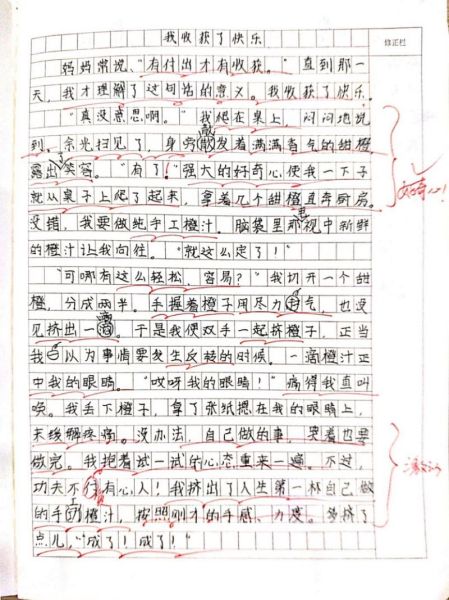 我收获了快乐
修正栏
妈妈常说、“有付出才有收获。”直到那一
天，我才理解了这句话的意义。我收获了快乐。
“真没意思啊。”我爬在桌上，闷闷地说
到。余光扫见了，身旁散发着满满香气的甜橙
露出了笑容。“有了！”强大的好奇心使我一下子
就从桌子上爬了起来，拿着几个甜橙直奔厨房。
没错，我要做纯手工橙汁。脑袋里那电视中新鲜
的橙汁让我向往。“就这么定了！”
“可哪有这么轻松，容易？”我切开一个甜
橙，分成两半。手握着橙子用尽力气，也没
见挤出一滴。于是我便双手一起挤橙子，正当
我以为事情要发生反转的时候。一滴橙汁正
中我的眼睛。“哎呀我的眼睛！”痛得我直叫
唤。我丢下橙子，拿了张纸摁在我的眼睛上，
来缓解疼痛。没办法，自己做的事，哭着也要
做完。我抱着试一试的心态重来一遍。不过，
功夫不负有心人！我挤出了人生第一杯自己做
的手工橙汁，按照刚才的手感、力度。多挤了
点儿，“成了！成了！”
好奇心！